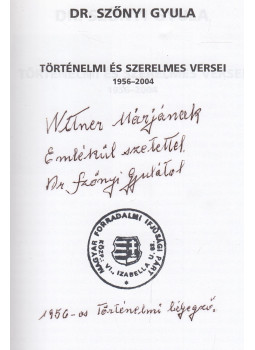 DR. SZŐNYI GYULA
TÖRTÉNELMI ÉS SZERELMES VERSEI
1956–2004
Wittner Márjának
Emlékül szeretettel
Dr. Szőnyi Gyulától
MAGYAR FORRADALMI IFJÚSÁGI PÁRT
KÖZP. VI., IZABELLA U.
1956-os Történelmi bélyegző.